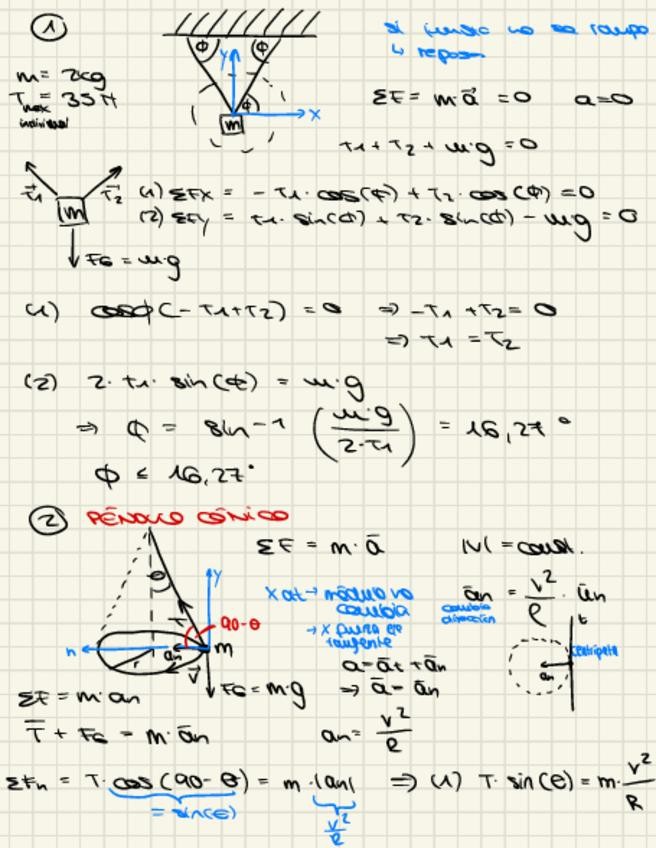 ①
φ φ
y
φ
x
m
m = 2kg
Tmax = 35 N
individual
si justo no se rompe
↳ reposo
ΣF = m·a⃗ = 0 a=0
T1 + T2 + m·g = 0
T⃗1 T⃗2
m
FG = m·g
(1) ΣFX = -T1·cos(φ) + T2·cos(φ) = 0
(2) ΣFY = T1·sin(φ) + T2·sin(φ) - mg = 0
(1) cosφ(-T1+T2) = 0 ⇒ -T1 + T2 = 0
⇒ T1 = T2
(2) 2·T1·sin(φ) = m·g
⇒ φ = sin-1 (m·g / 2·T1) = 16,27°
φ ≤ 16,27°
② PÉNDULO CÓNICO
ΣF = m·a̅ |V| = const.
θ
y
T
90-θ
n
an
m
r
v⃗
FG = m·g
x at → módulo no
cambia
→ x fuerza eje
tangente
a̅n = v²/ρ · u̅n
cambia
dirección
t
centrípeta
an
a̅ = a̅t + a̅n
⇒ a̅ = a̅n
ΣF = m·an
T̅ + FG = m·a̅n
an = v²/R
ΣFn = T·cos(90-θ) = m·|an| ⇒ (1) T·sin(θ) = m·v²/R
= sin(θ)
v²/R